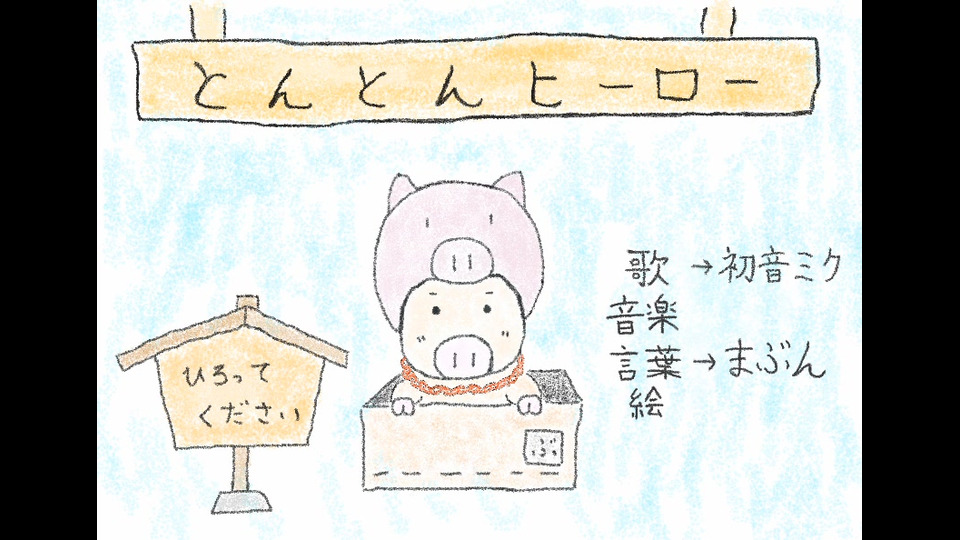 とんとんヒーロー
ひろって
ください
ぶ
歌 →初音ミク
音楽
言葉→まぶん
絵